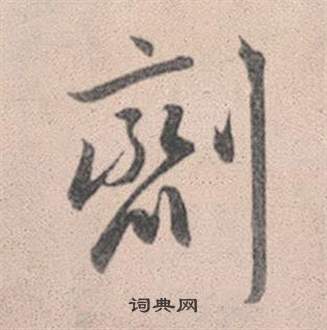 劑
词典网